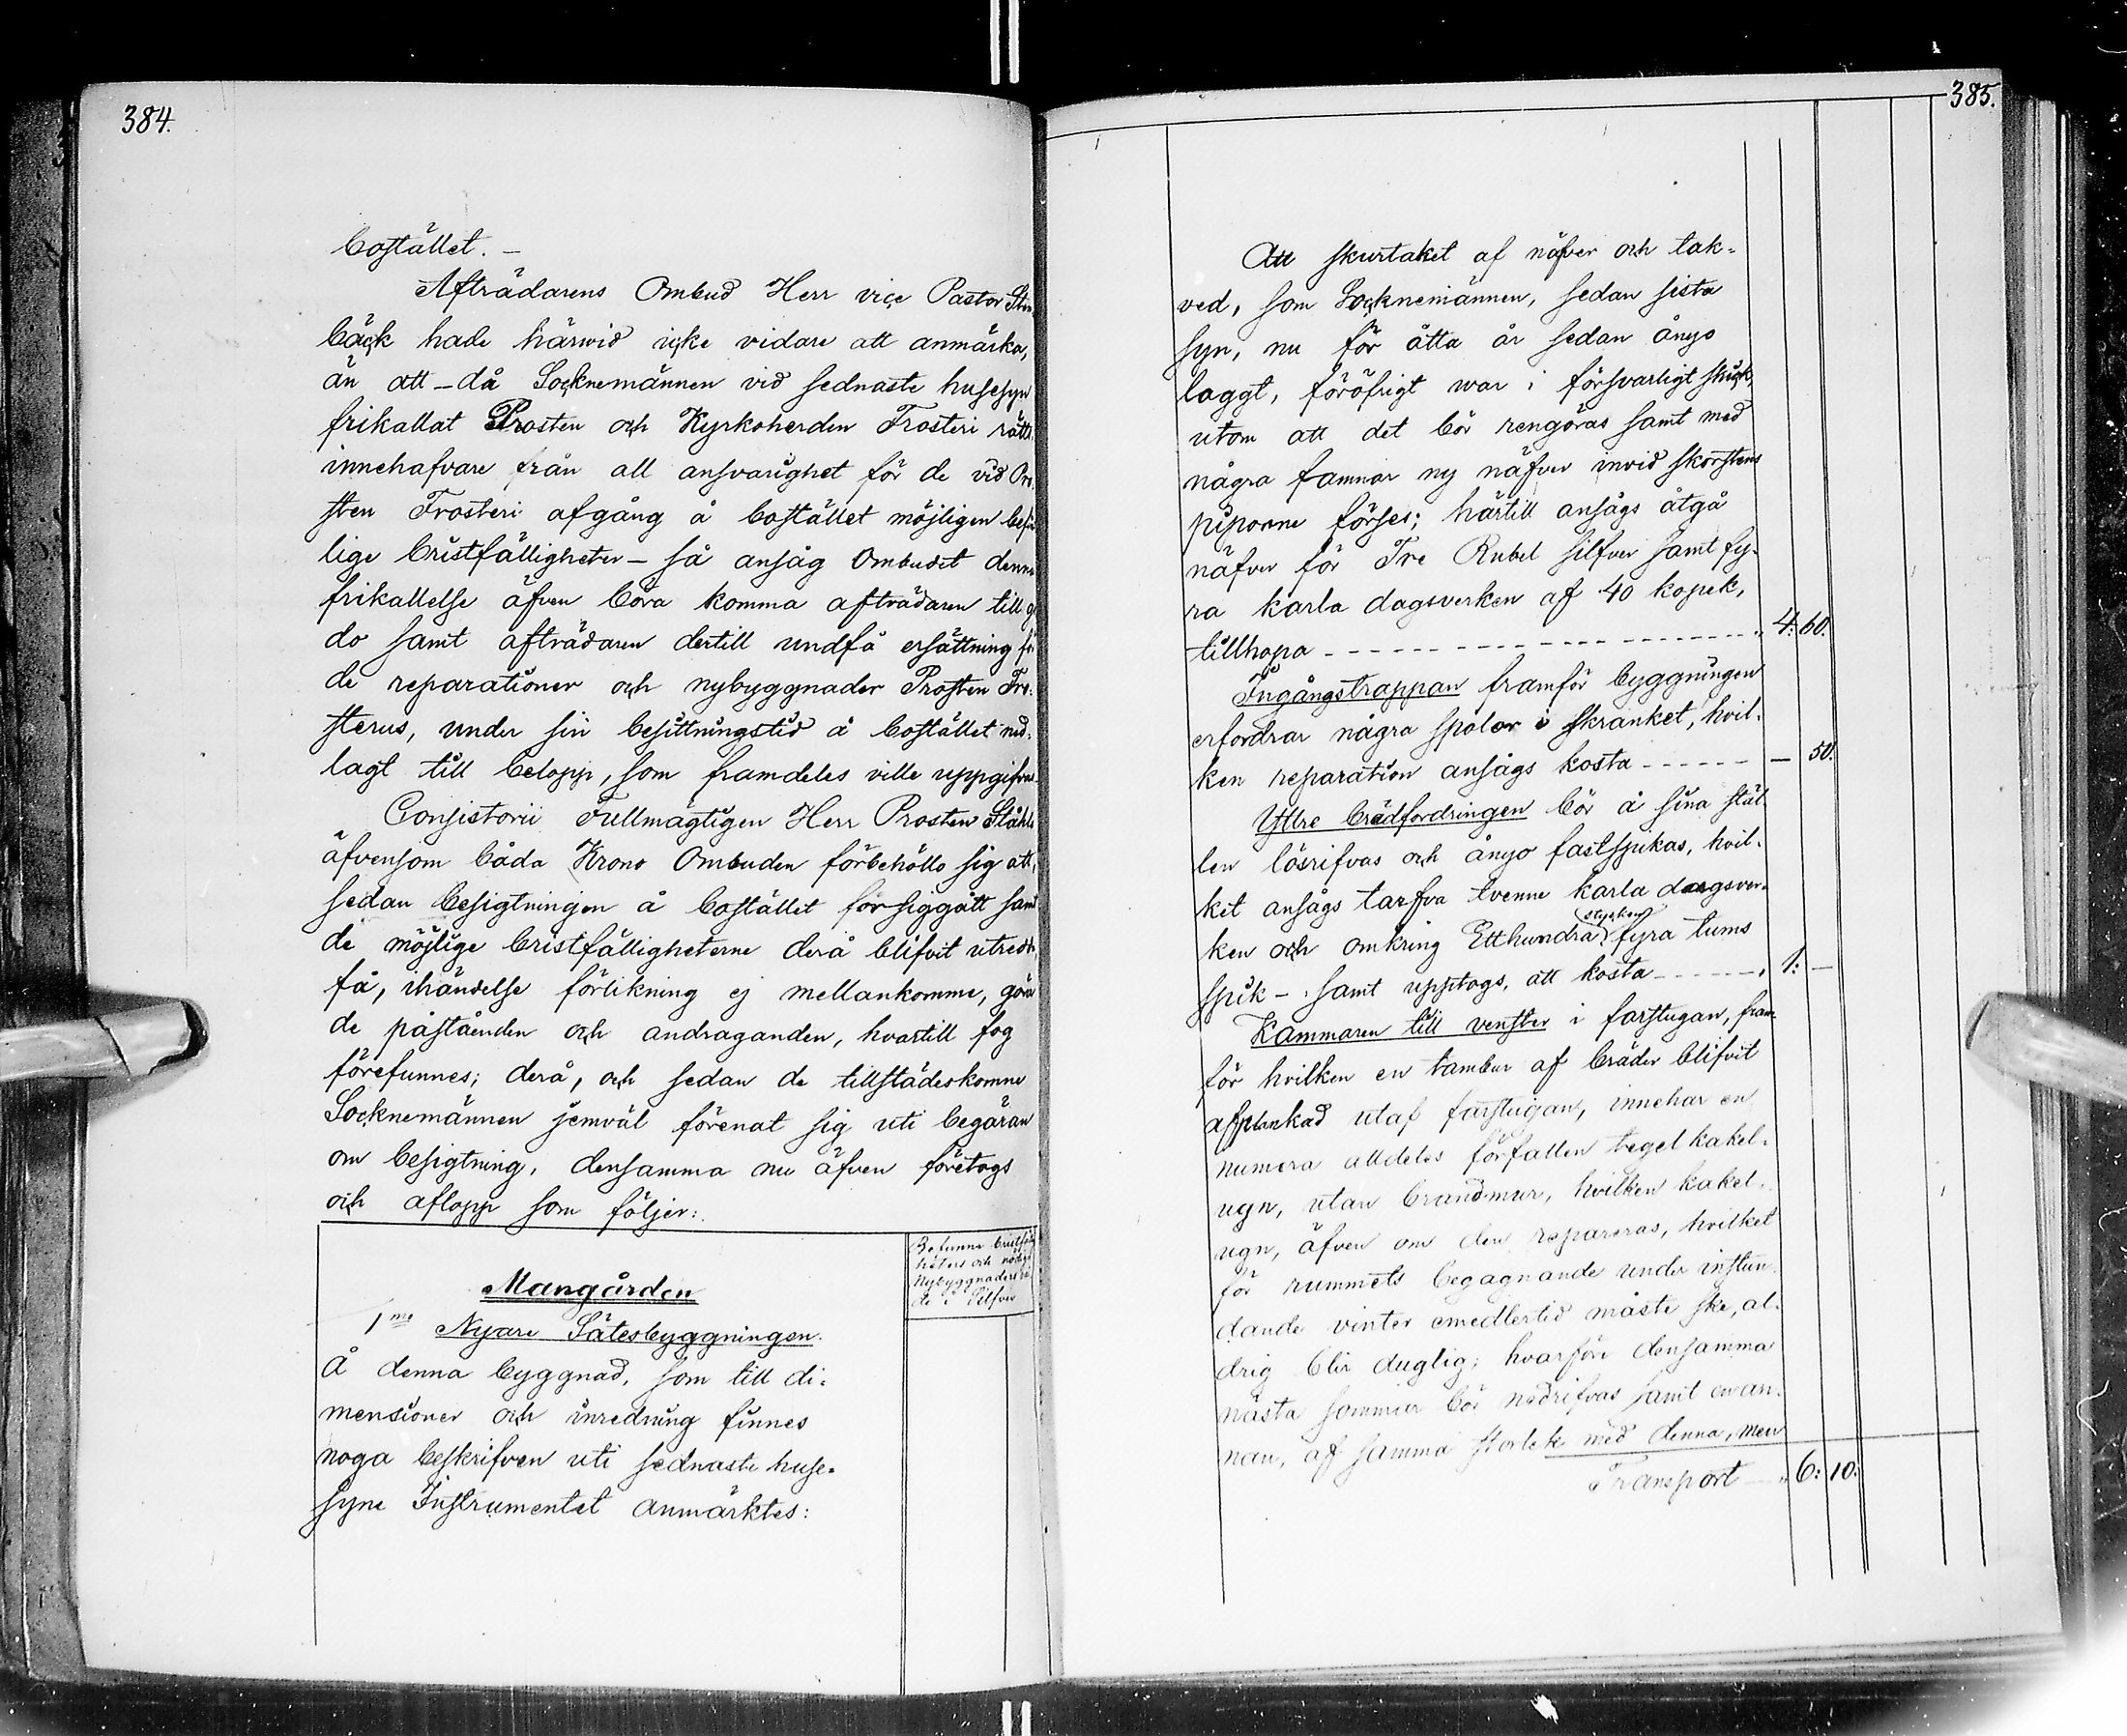 384.
bostället. –
Afträdarens Ombud Herr vice Pastor Sten
bäck hade härwid icke vidare att anmärka,
än att – då Socknemännen vid sednaste husesyn
frikallat Prosten och Kyrkoherden Frosteri rätts
innehafvare från all ansvarighet för de vid Pro
sten Frosteri afgång å bostället möjligen befin
lige bristfälligheter – så ansåg Ombudet denna
frikallelse äfven böra komma afträdaren till go
do samt afträdaren dertill undfå ersättning för
de reparationer och nybyggnader Prosten Fro:
sterus, under sin besittningstid å bostället ned:
lagt till belopp, som framdeles ville uppgifva
Consistorii Fullmägtigen Herr Prosten Ståhle
äfvensom båda Krono Ombuden förbehöllo sig att,
sedan besigtningen å bostället försiggått samt
de möjlige bristfälligheterne derå blifvit utredde,
få, ihändelse förlikning ej mellankomme, göra
de påståenden och andraganden, hvartill fog
förefunnes; derå, och sedan de tillstädeskomne
Socknemännen jemväl förenat sig uti begäran
om besigtning, densamma nu äfven företogs
och aflopp som följer:.
Befunne bristfällig
heters och nödige
Nybyggnaders vär
de i Silfver
Mangården
1mo Nyare Sätesbyggningen.
Å denna byggnad, som till di:
mensioner och inredning finnes
noga beskrifven uti sednaste huse-
syne Instrumentet anmärktes:
385.
Att skurtaket af näfver och tak-
ved, som Socknemännen, sedan sista
syn, nu för åtta år sedan ånyo
laggt, föröfrigt war i försvarligt skick,
utom att det bör rengöras samt med
några famnar ny näfver invid skorstens
piporne förses; härtill ansågs åtgå
näfver för Tre Rubel silfver samt fy-
ra karla dagsverken af 40 kopek,
tillhopa - - - - - - - - - - - - - - - - „ 4: 60.
Ingångstrappan framför byggningen
erfordrar några spolar i skranket, hvil-
ken reparation ansågs kosta - - - - - - — 50.
Yttre brädfordringen bör å sina stäl-
len lösrifvas och ånyo fastspikas, hvil-
ket ansågs tarfva tvenne karla dagsver-
stycken
ken och omkring Etthundra fyra tums
spik – samt upptogs, att kosta - - - - - „ 1: —
Kammaren till venster i farstugan, fram-
för hvilken en tambur af bräder blifvit
afplankad utaf farstugan, innehar en
numera alldeles förfallen tegel kakel-
ugn, utan brandmur, hvilken kakel-
ugn, äfven om den repareras, hvilket
för rummets begagnande under instun
dande vinter emedlertid måste ske, al-
drig blir duglig; hvarföre densamma
nästa sommar bör nedrifvas samt en an-
nan, af samma storlek med denna, men
Transport — „ 6: 10: